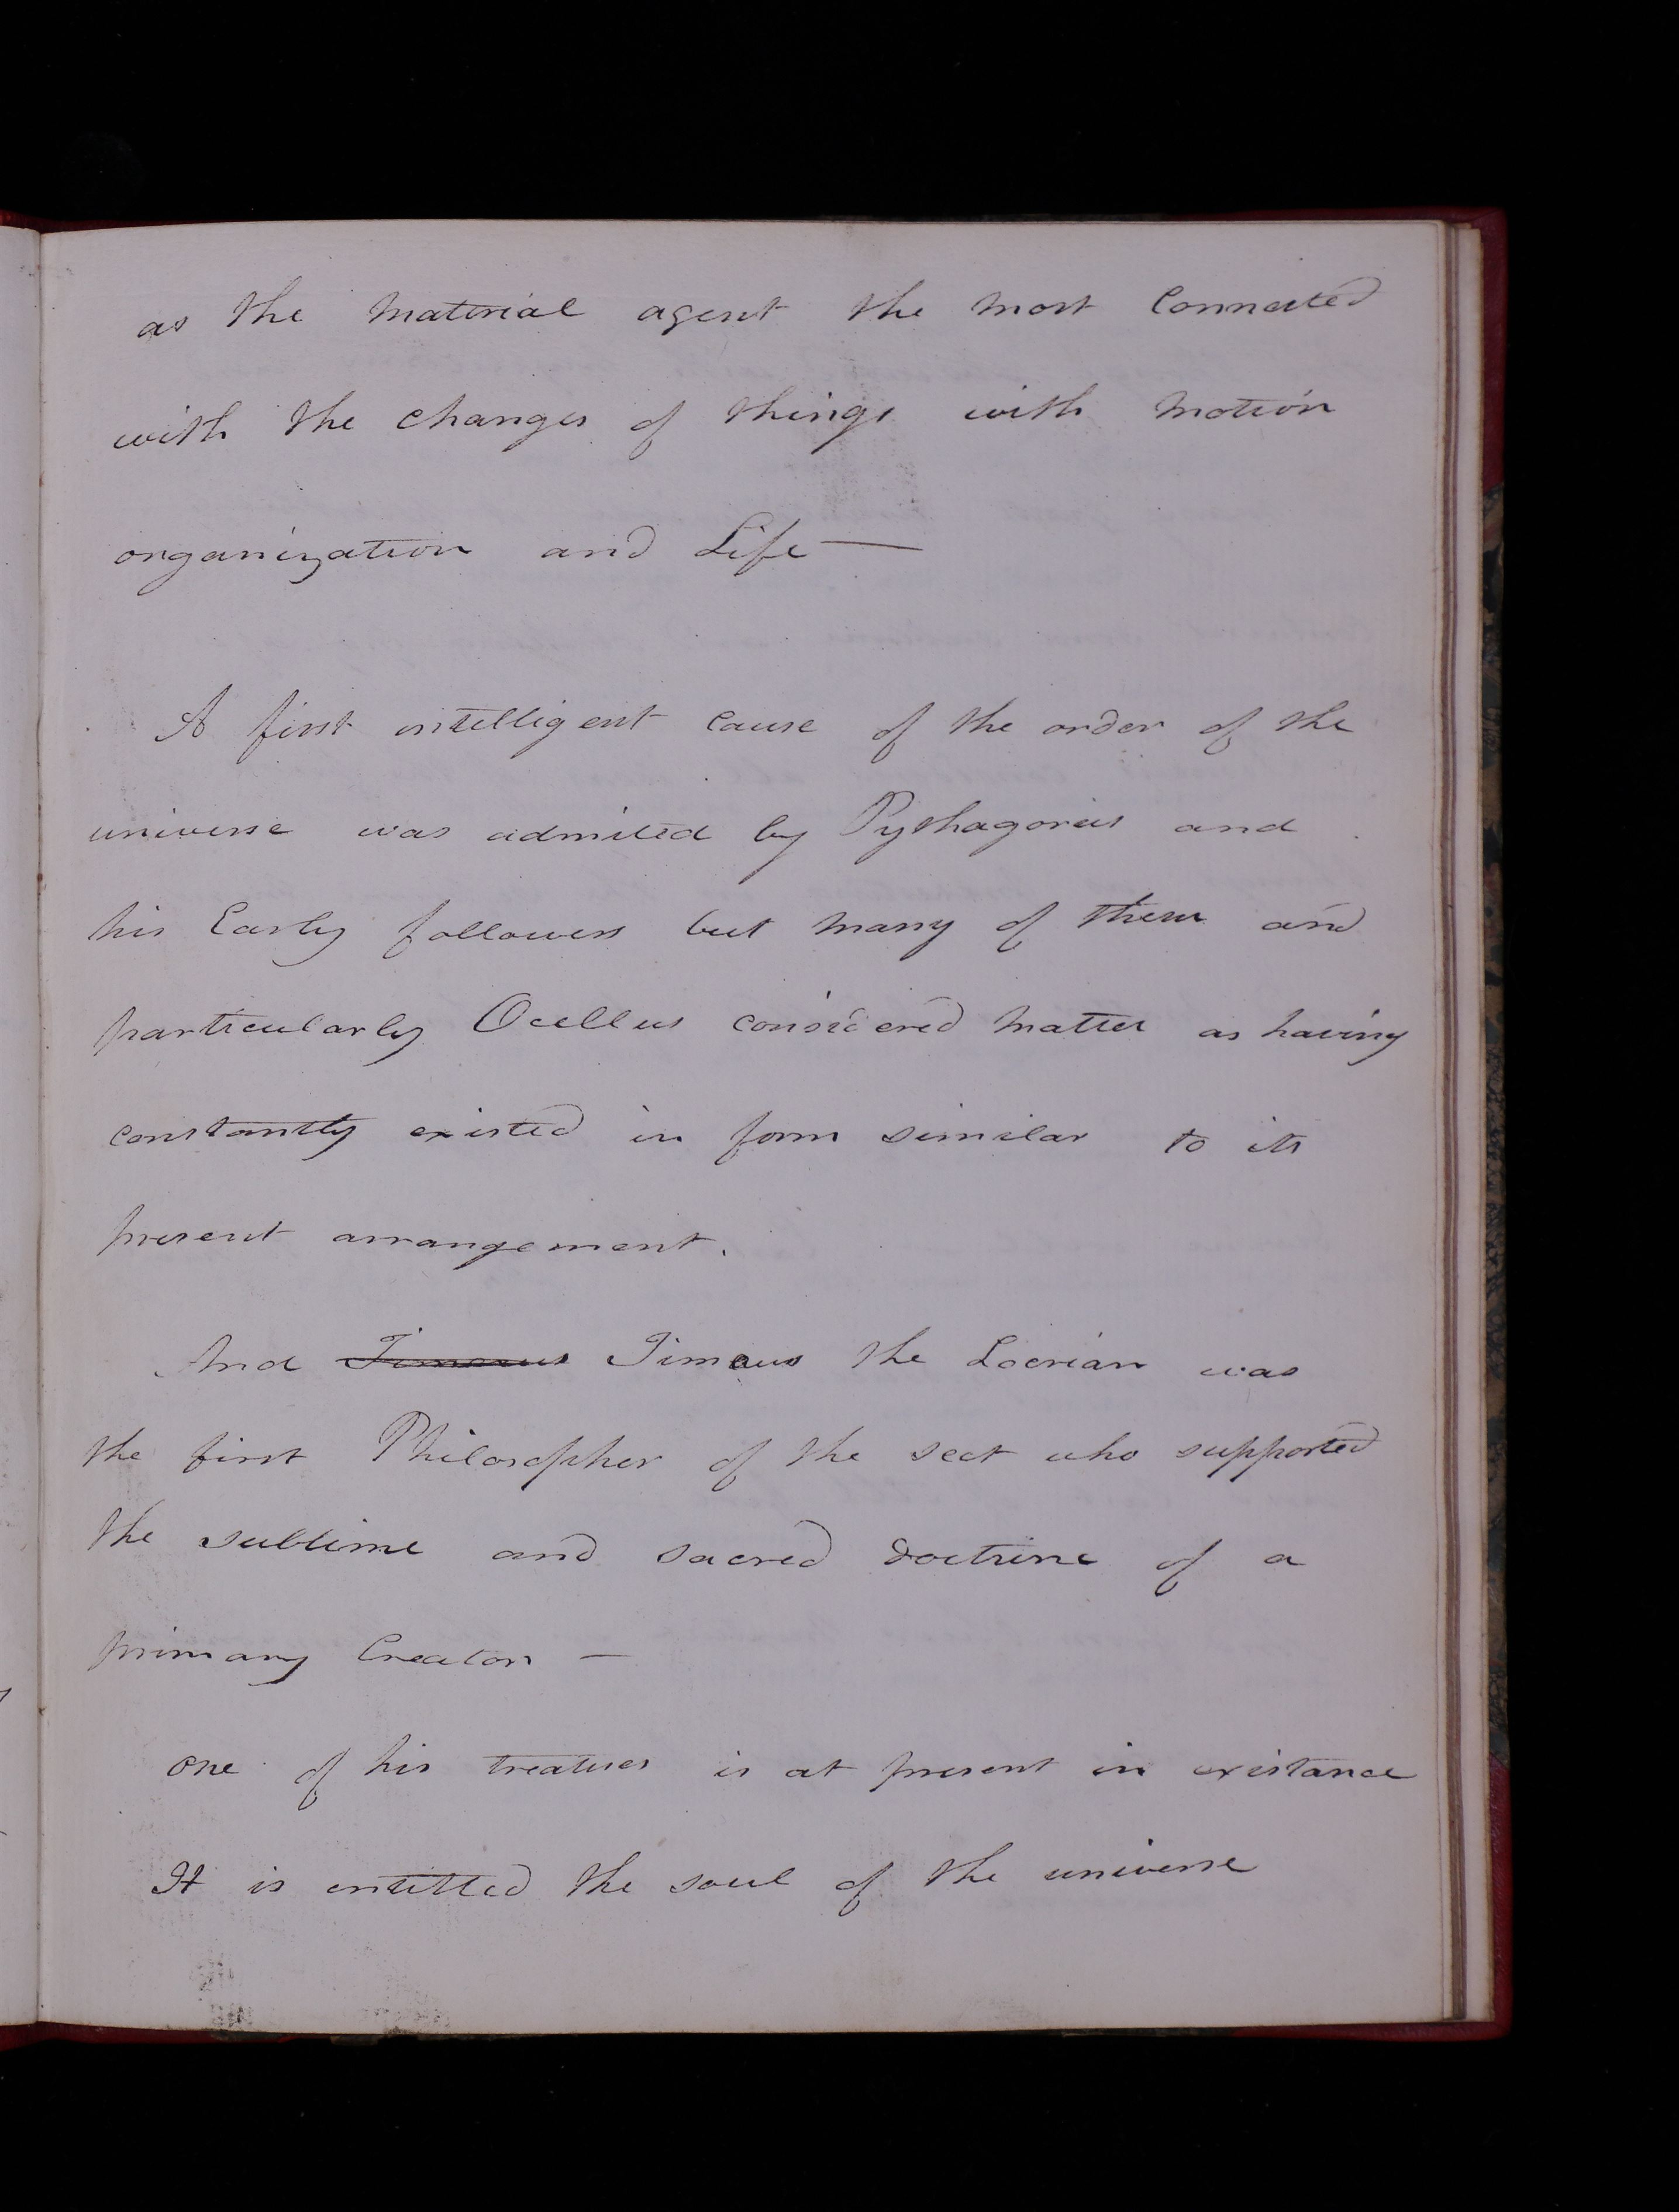 as the material agent the most connected
with the changes of things with motion
organization and Life —
A first intelligent cause of the order of the
universe was admited by Pythagoras and
his Early followers but many of them and
particularly Ocellus considered matter as having
constantly existed in form similar to its
present arrangement.
And Timaeus Timaus the Locrian was
the first Philosopher of the sect who supported
the sublime and sacred doctrine of a
primary Creator —
one of his treatises is at present in existance
It is entitled the soul of the universe